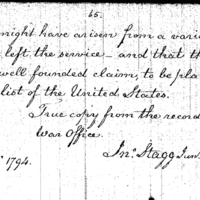 65.
might have arisen from a vari
left the service — and that th
well founded claim, to be pla
list of the United States.
True copy from the record
War Office.
Jnº. Stagg Jun
1794.